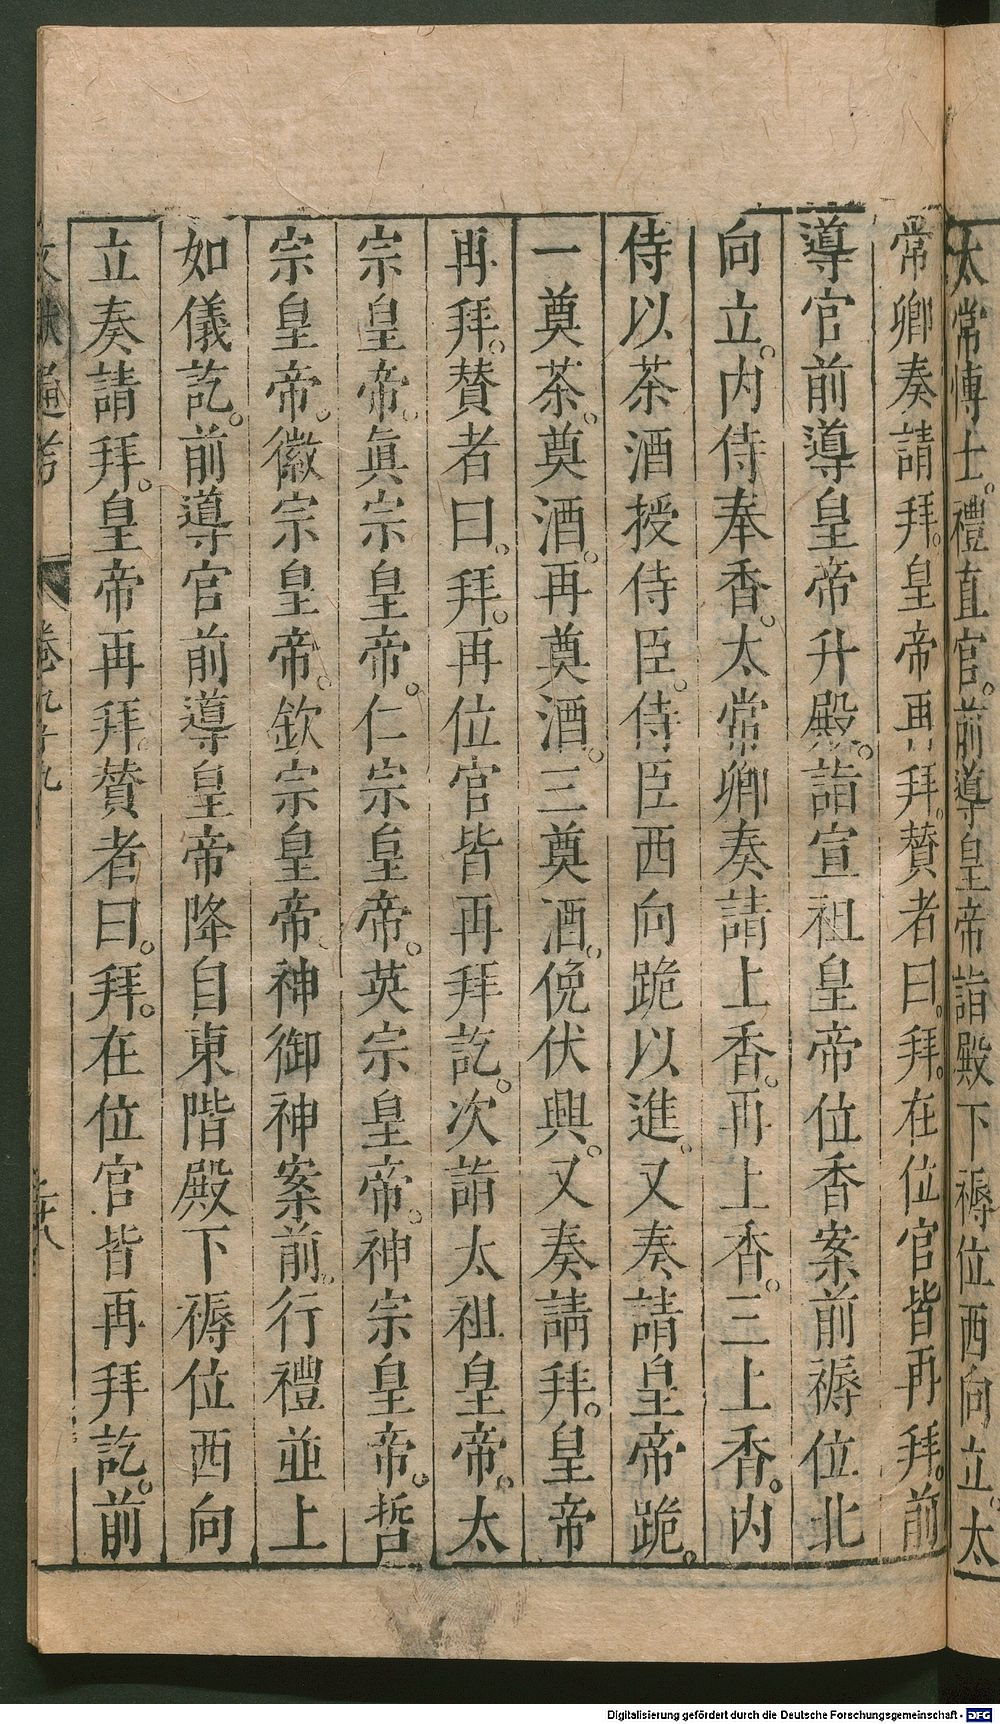 太常博士。禮直官。前導皇帝詣殿下褥位西向立。太
常卿奏請拜。皇帝再拜。贊者曰。拜。在位官皆再拜。前
導官前導皇帝升殿。詣宣祖皇帝位香案前褥位北
向立。内侍奉香。太常卿奏請上香。再上香。三上香。内
侍以茶酒授侍臣。侍臣西向跪以進。又奏請皇帝跪。
一奠茶。奠酒。再奠酒。三奠酒。俛伏興。又奏請拜。皇帝
再拜。贊者曰。拜。再位官皆再拜訖。次詣太祖皇帝。太
宗皇帝。眞宗皇帝。仁宗皇帝。英宗皇帝。神宗皇帝。哲
宗皇帝。徽宗皇帝。欽宗皇帝。神御神案前。行禮並上
如儀訖。前導官前導皇帝降自東階殿下褥位西向
立奏請拜。皇帝再拜。贊者曰。拜。在位官皆再拜訖。前
文獻通考 卷九十九
Digitalisierung gefördert durch die Deutsche Forschungsgemeinschaft - DFG